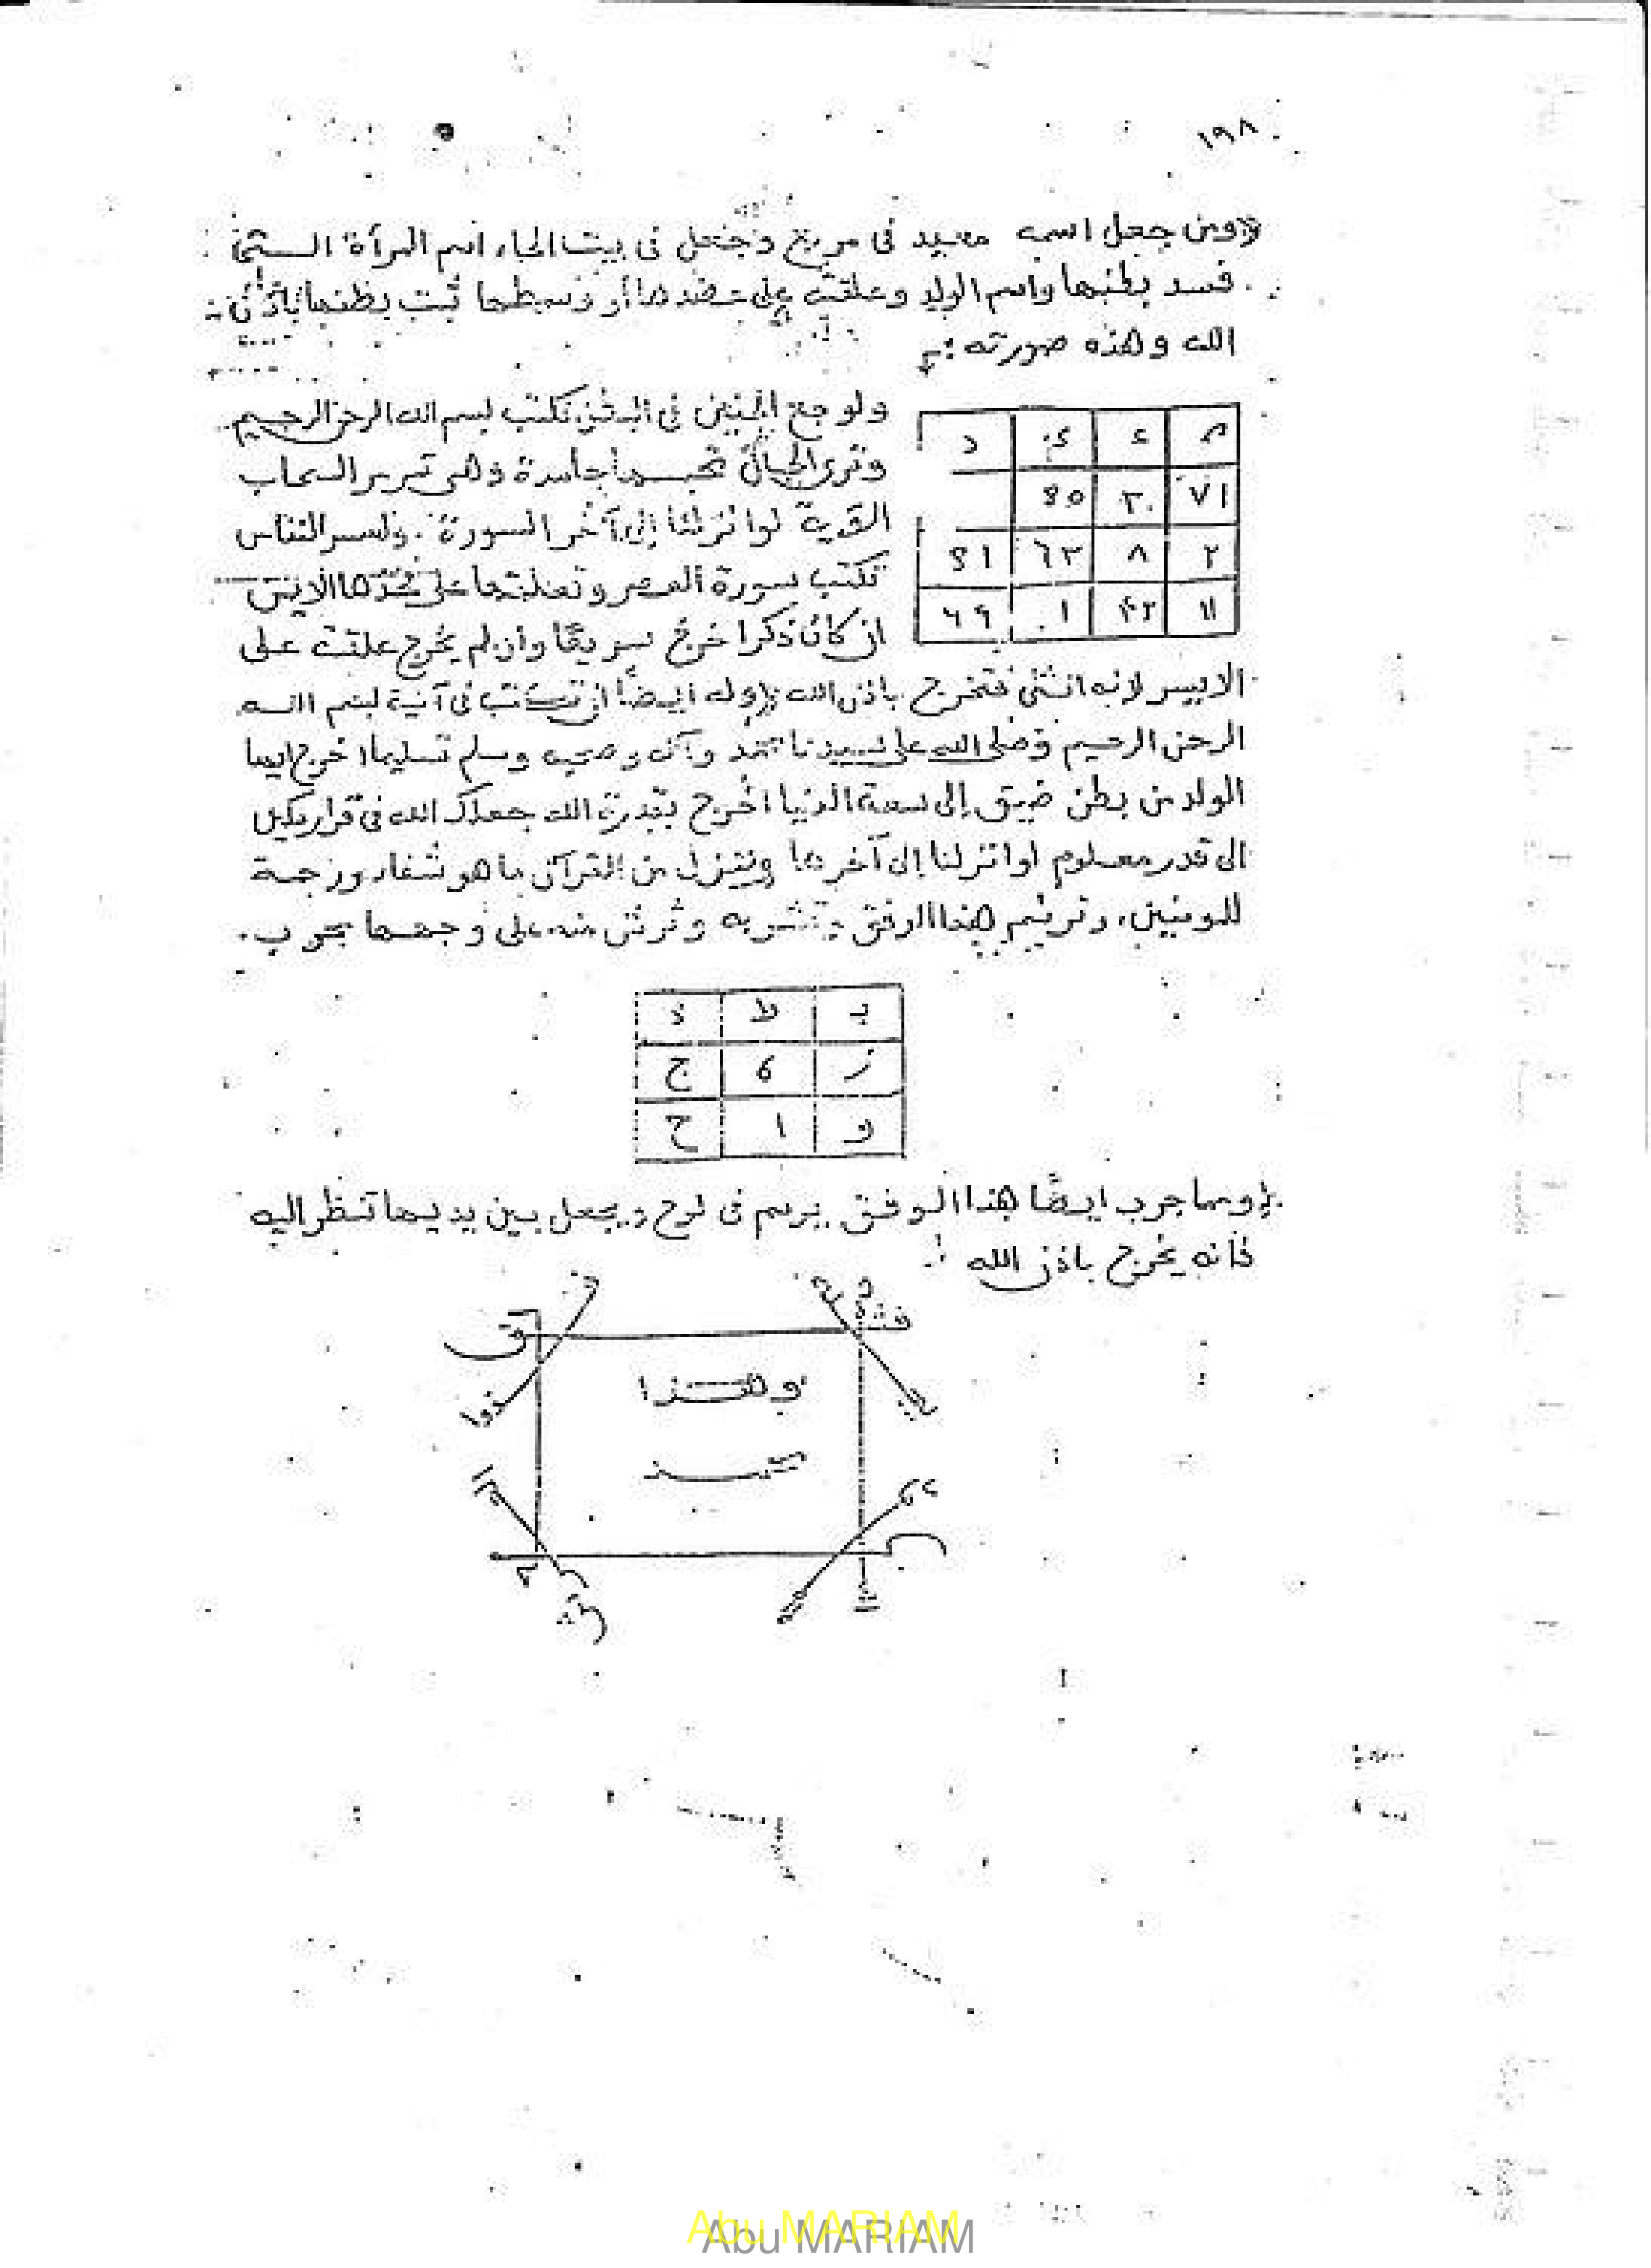 ١٩٨
ومن جعل اسمه معيد فى مربع وجعل فى بيت الحاء اسم المرأة التى
فسد بطنها واسم الولد وعلقت على عضدها أو وسطها ثبت بطنها باذن
الله وهذه صورته :
م ع ى د
٧١ ٢٠
٢ ٨ ٦٣
١١ ٤٢ ١
ولوجع الجنين فى البطن تكتب بسم الله الرحمن الرحيم
وترى الجبال تحسبها جامدة وهى تمر مر السحاب
لو انزلنا إلى آخر السورة . ولعسر النفاس
تكتب سورة العصر وتعلقها على فخذها الايمن
ان كان ذكرا خرج سريعًا وان لم يخرج علقت على
الايسر لانه انثى فتخرج باذن الله وله ايضًا ان تكتب فى آنية بسم الله
الرحمن الرحيم وصلى الله على سيدنا محمد وآله وصحبه وسلم تسليما اخرج ايها
الولد من بطن ضيق إلى سعة الدنيا اخرج بقدرة الله جعلك الله فى قرار مكين
الى قدر معلوم لو انزلنا إلى آخرها وننزل من القرآن ما هو شفاء ورحمة
للمومنين . وترسم هذا الوفق وتشربه وترش منه على وجهها مجرب .
ب ط د
ز ه ج
و ا ح
ومما جرب ايضًا هذا الوفق يرسم فى لوح ويجعل بين يديها تنظر اليه
فانه يخرج باذن الله
وهذا
Abu MARIAM